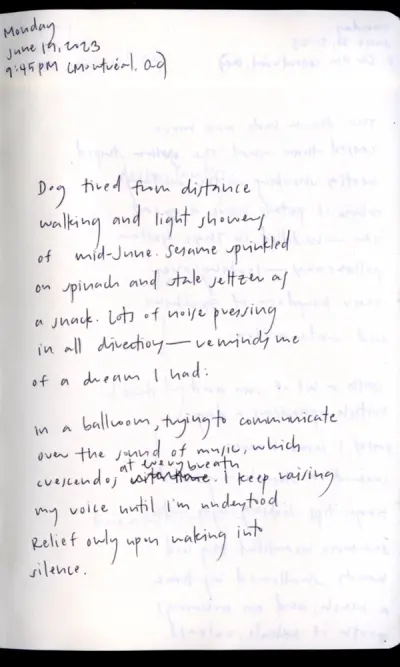 Monday
June 19, 2023
9:45PM (Montréal, QC)
Dog tired from distance
walking and light showers
of mid-June. Sesame sprinkled
on spinach and stale seltzer as
a snack. Lots of noise pressing
in all directions — reminds me
of a dream I had:
in a ballroom, trying to communicate
over the sound of music, which
at every breath
crescendos. I keep raising
my voice until I'm understood
Relief only upon waking into
silence.